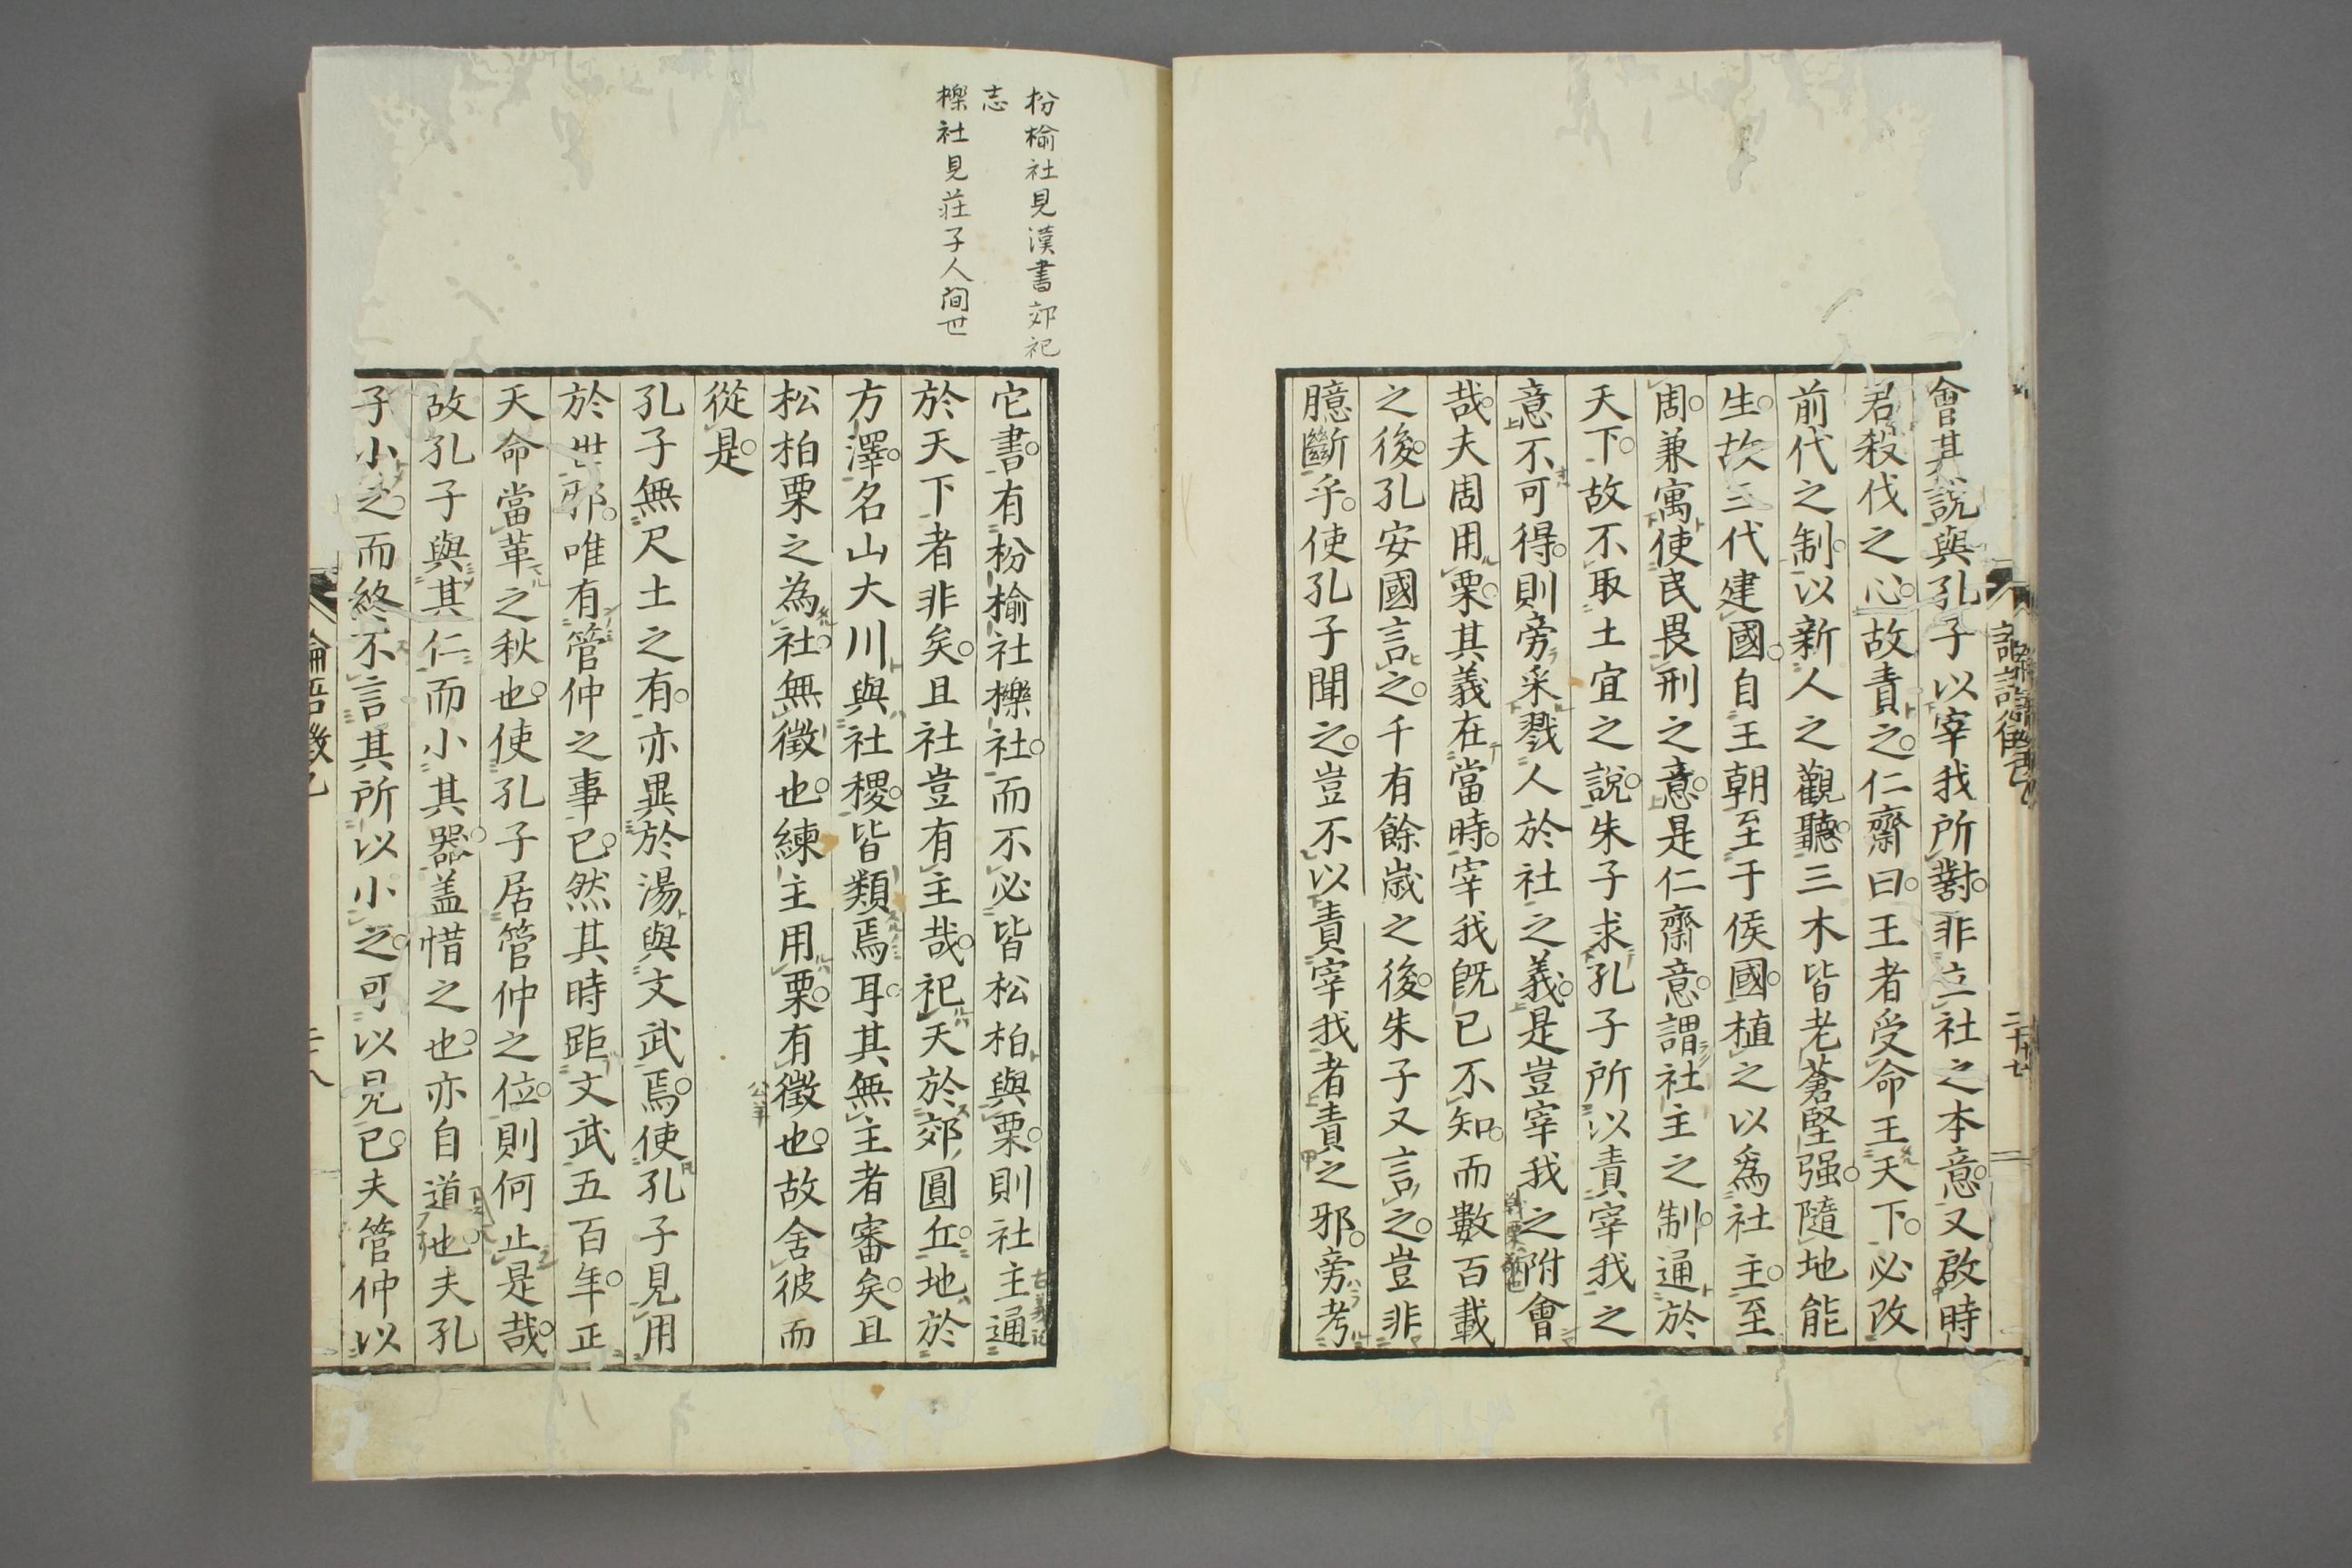 會其説與孔子以宰我所對非立社之本意又啟時
君殺伐之心故責之仁齋曰王者受命王天下必改
前代之制以新人之觀聽三木皆老蒼堅强隨地能
生故三代建國自王朝至于侯國植之以爲社主至
周兼寓使民畏刑之意是仁齋意謂社主之制通於
天下故不取土宜之説朱子求孔子所以責宰我之
意不可得則旁采戮人於社之義是豈宰我之附會
哉夫周用栗其義在當時宰我既已不知而數百載
之後孔安國言之千有餘歲之後朱子又言之豈非
臆斷乎使孔子聞之豈不以責宰我者責之邪旁考
枌榆社見漢書郊祀
志
櫟社見莊子人間世
它書有枌榆社櫟社而不必皆松柏與栗則社主通
於天下者非矣且社豈有主哉祀天於郊圓丘地於
方澤名山大川與社稷皆類焉耳其無主者審矣且
松柏栗之為社無徵也練主用栗有徵也故舍彼而
公羊
從是
孔子無尺土之有亦異於湯與文武焉使孔子見用
於世邪唯有管仲之事已然其時距文武五百年正
天命當革之秋也使孔子居管仲之位則何止是哉
故孔子與其仁而小其器盖惜之也亦自道也夫孔
子小之而終不言其所以小之可以見已夫管仲以
論語徵乙